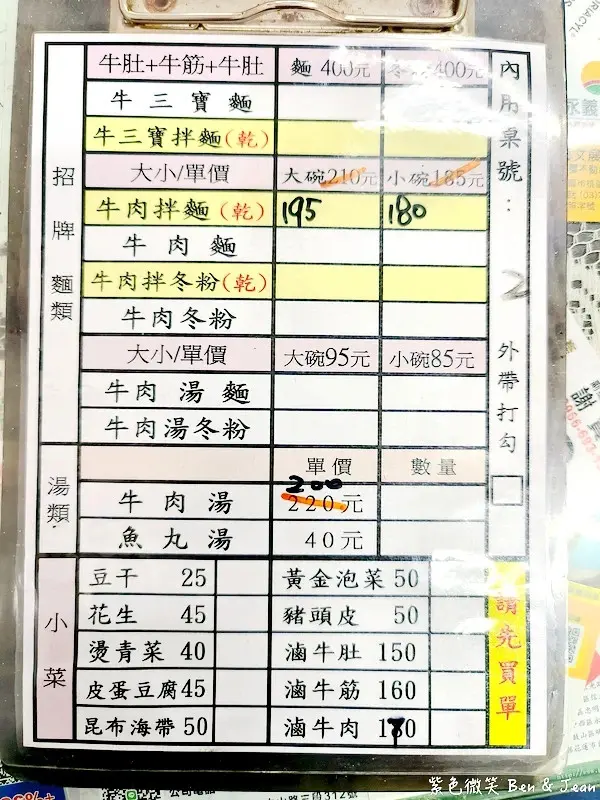 牛肚+牛筋+牛肚 麵 400元 冬 400元
牛三寶麵
牛三寶拌麵(乾)
招牌麵類
大小/單價 大碗210元 小碗185元
牛肉拌麵(乾) 195 180
牛肉麵
牛肉拌冬粉(乾)
牛肉冬粉
大小/單價 大碗95元 小碗85元
牛肉湯麵
牛肉湯冬粉
湯類
單價 數量
200
牛肉湯 220元
魚丸湯 40元
小菜
豆干 25 黃金泡菜 50
花生 45 豬頭皮 50
燙青菜 40 滷牛肚 150
皮蛋豆腐45 滷牛筋 160
昆布海帶 50 滷牛肉
內用桌號： 2
外帶打勾
請先買單
永義
謝
紫色微笑 Ben & Jean